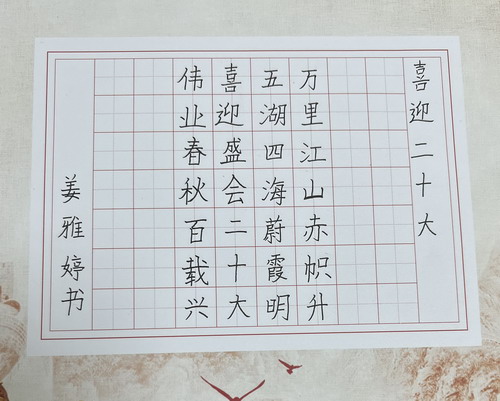 喜迎二十大
万里江山赤帜升
五湖四海蔚霞明
喜迎盛会二十大
伟业春秋百载兴
姜雅婷书